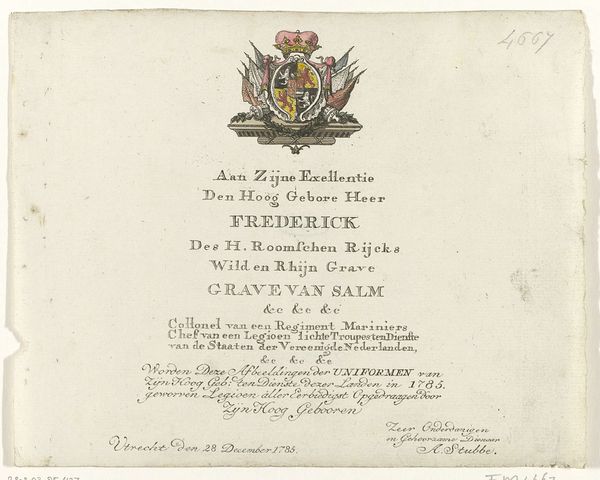 4667
Aan Zijne Exellentie
Den Hoog Gebore Heer
FREDERICK
Des H. Roomſchen Rijcks
Wild en Rhijn Grave
GRAVE VAN SALM
&c &c &c
Collonel van een Regiment Mariniers
Chef van een Legioen lichte Troupes ten Dienste
van de Staaten der Vereenigde Nederlanden,
&c &c &c
Worden Deze Afbeeldingen der UNIFORMEN van
Zijn Hoog Geb: ten Dienste dezer Landen in 1785.
geworven Legioen aller Eerbiedigst Opgedraagen door
Zijn Hoog Gebooren
Zeer Onderdanigen
en Gehoorzame Dienaar
Utrecht den 28 December 1785.
A. Stubbe.